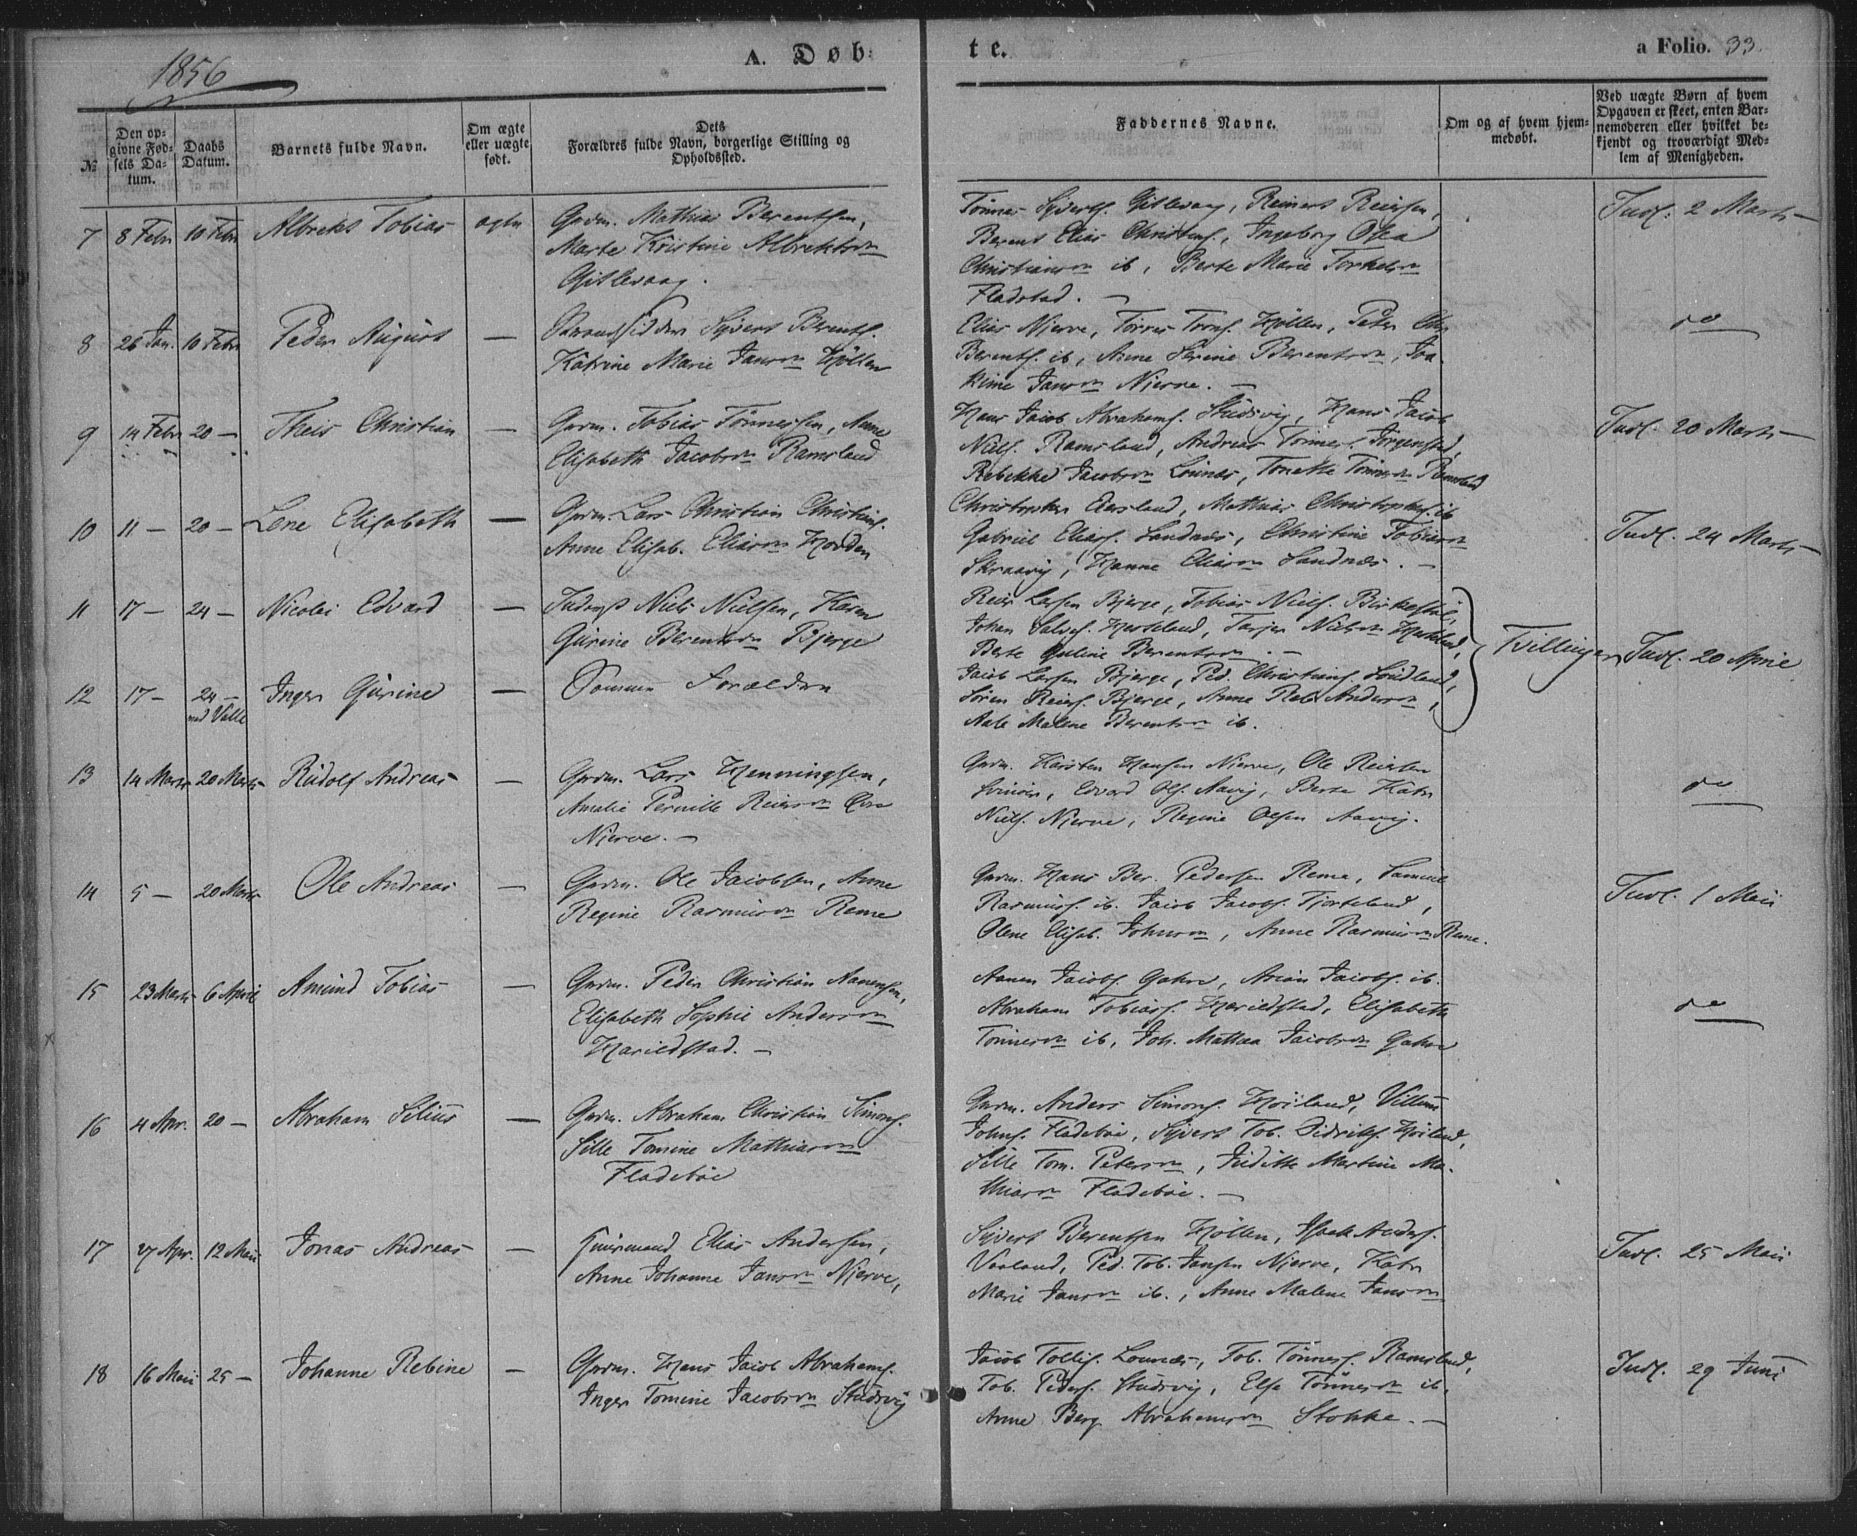 1856
A. Døb
te.
a Folio. 33.
№
Den opgivne Fødsels Datum.
Daabs Datum.
Barnets fulde Navn.
Om ægte eller uægte født.
Dets Forældres fulde Navn, borgerlige Stilling og Opholdssted.
Faddernes Navne.
Om og af hvem hjemmedøbt.
Ved uægte Børn af hvem Opgaven er skeet, enten Barnemoderen eller hvilket bekjendt og troværdigt Medlem af Menigheden.
7 8 Febr 10 Febr Albrekt Tobias ægte Grdm. Mathias Berentsen,
Marte Kristine Albrektsdn
Gitlevaag.
Tønnes Syverts. Gitlevaag, Reinert Reiersen,
Berent Elias Christens., Ingeborg Osea
Christiansdn ib, Berte Marie Torkelsdn
Fladstad. —
Indl. 2 Marts —
8 26 Jan. 10 Febr Peder August — Strandsidder Syvert Berents.
Katrine Marie Jansdn Høllen
Elias Njerve, Tørres Høllen, Peter
Berents. ib, Anne Serine Berentsdn, Joa-
kime Jansdn Njerve. —
do
9 14 Febr 20 — Theis Christian — Grdm. Tobias Tønnessen, Anne
Elisabeth Jacobsdn Ramsland
Hans Jacob Abrahams. Studsvig, Hans Jacob
Niels. Ramsland, Andreas Jørgenstad,
Rebekke Jacobsdn Lounæs, Tonette Tønnesdn Ramsland
Indl. 20 Marts —
10 11 — 20 — Lene Elisabeth — Grdm. Lars Christian Christians.
Anne Elisab. Eliasdn Hodden
Christopher Eersland, Mathias Christophers. ib
Gabriel Elias. Sandnæs, Christine Tobiasdn
Skraavig, Hanne Eliasdn Sandnæs. —
Indl. 24 Marts —
11 17 — 24 — Nicolai Edvard — Inderst Niels Nielsen, Karen
Gurine Berentsdn Bjerge
Reier Larsen Bjerge, Tobias Niels. Birkestøl,
Johan Salves. Haeseland, Tarjer Nielsdn
Berte Guline Berentsdn. —
Tvillinger
Indl. 20 April
12 17 — 24 — Inger Gurine — Samme Forældre
ved Valle
Jacob Larsen Bjerge, Ped. Christians. Lindland,
Søren Reiers. Bjerge, Anne Reb. Andersdn,
Aale Malene Berentsdn ib.
13 14 Marts 20 Marts Rudolf Andreas — Grdm. Lars Henningsen,
Amalie Pernille Reiersdn
Njerve. —
Grdm. Karsten Hansen Njerve, Ole Reiersen
Svinør, Edvard Ols. Aavig, Berte Katr
Niels. Njerve, Regine Olsen Aavig.
do
14 5 — 20 Marts Ole Andreas — Grdm. Ole Jacobsen, Anne
Regine Rasmusdn Reme
Grdm. Hans Ber. Pedersen Reme, Samuel
Rasmus. ib. Jacob Jacobs. Tjorteland,
Olene Elisab. Johnsdn, Anne Rasmusdn Reme.
Indl. 1 Mai
15 23 Marts 6 April Amund Tobias — Grdm. Peder Christian Aanensen,
Elisabeth Sophie Andersdn
Harieldstad. —
Aanen Jacobs. Gahre, Arian Jacobs. ib.
Abraham Tobias. Harieldstad, Elisabeth
Tønnesdn ib, Joh. Mathea Jacobsdn Gahre
do
16 4 Apr. 20 — Abraham Silius — Grdm. Abraham Christian Simons.
Sille Tomine Mathiasdn
Fladebøe
Grdm. Anders Simons. Høiland, Villum
Johns. Fladebøe, Syvert Tob. Didriks. Høiland,
Sille Tom. Petersdn, Juditte Martine Ma-
thiasdn Fladebøe. —
17 27 Apr. 12 Mai Jonas Andreas — Huusmand Elias Andersen,
Anne Johanne Jansdn Njerve,
Syvert Berentsen Høllen, Isaak Anders.
Valand, Ped. Tob. Jansen Njerve, Katr
Marie Jansdn ib., Anne Malene Jansdn
Indl. 25 Mai
18 16 Mai 25 — Johanne Rebine — Grdm. Hans Jacob Abrahams.
Inger Tomine Jacobsdn Studsvig
Jacob Tollis. Lounæs, Tob. Tønnes. Ramsland,
Tob. Peders. Studsvig, Else Tønnesdn ib,
Anne Berg. Abrahamsdn Stokke. —
Indl. 29 Juni